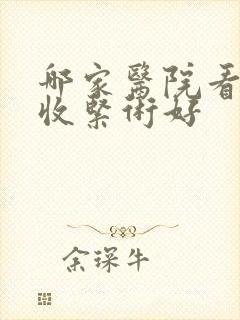 哪家醫院看
收緊術好
余琛牛